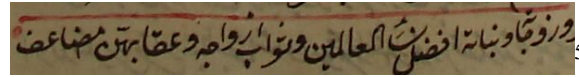 وزوجا وبناته افضل نساء العالمين وثواب ازواجه وعقابهن مضاعف